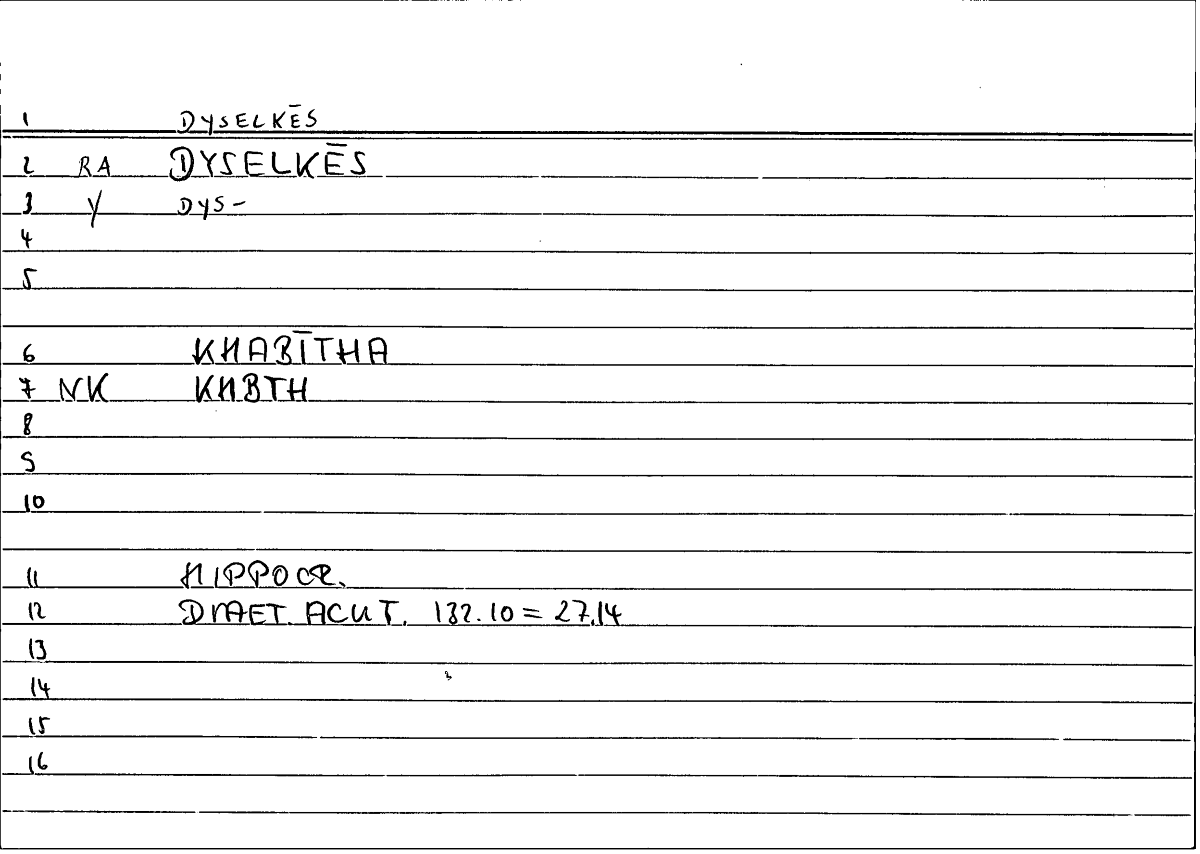 1 DYSELKĒS
2 RA DYSELKĒS
3 Y DYS-
4
5
6 KHABĪTHA
7 NK KHBTH
8
9
10
11 HIPPOCR.
12 DIAET. ACUT. 132.10 = 27.14
13
14
15
16